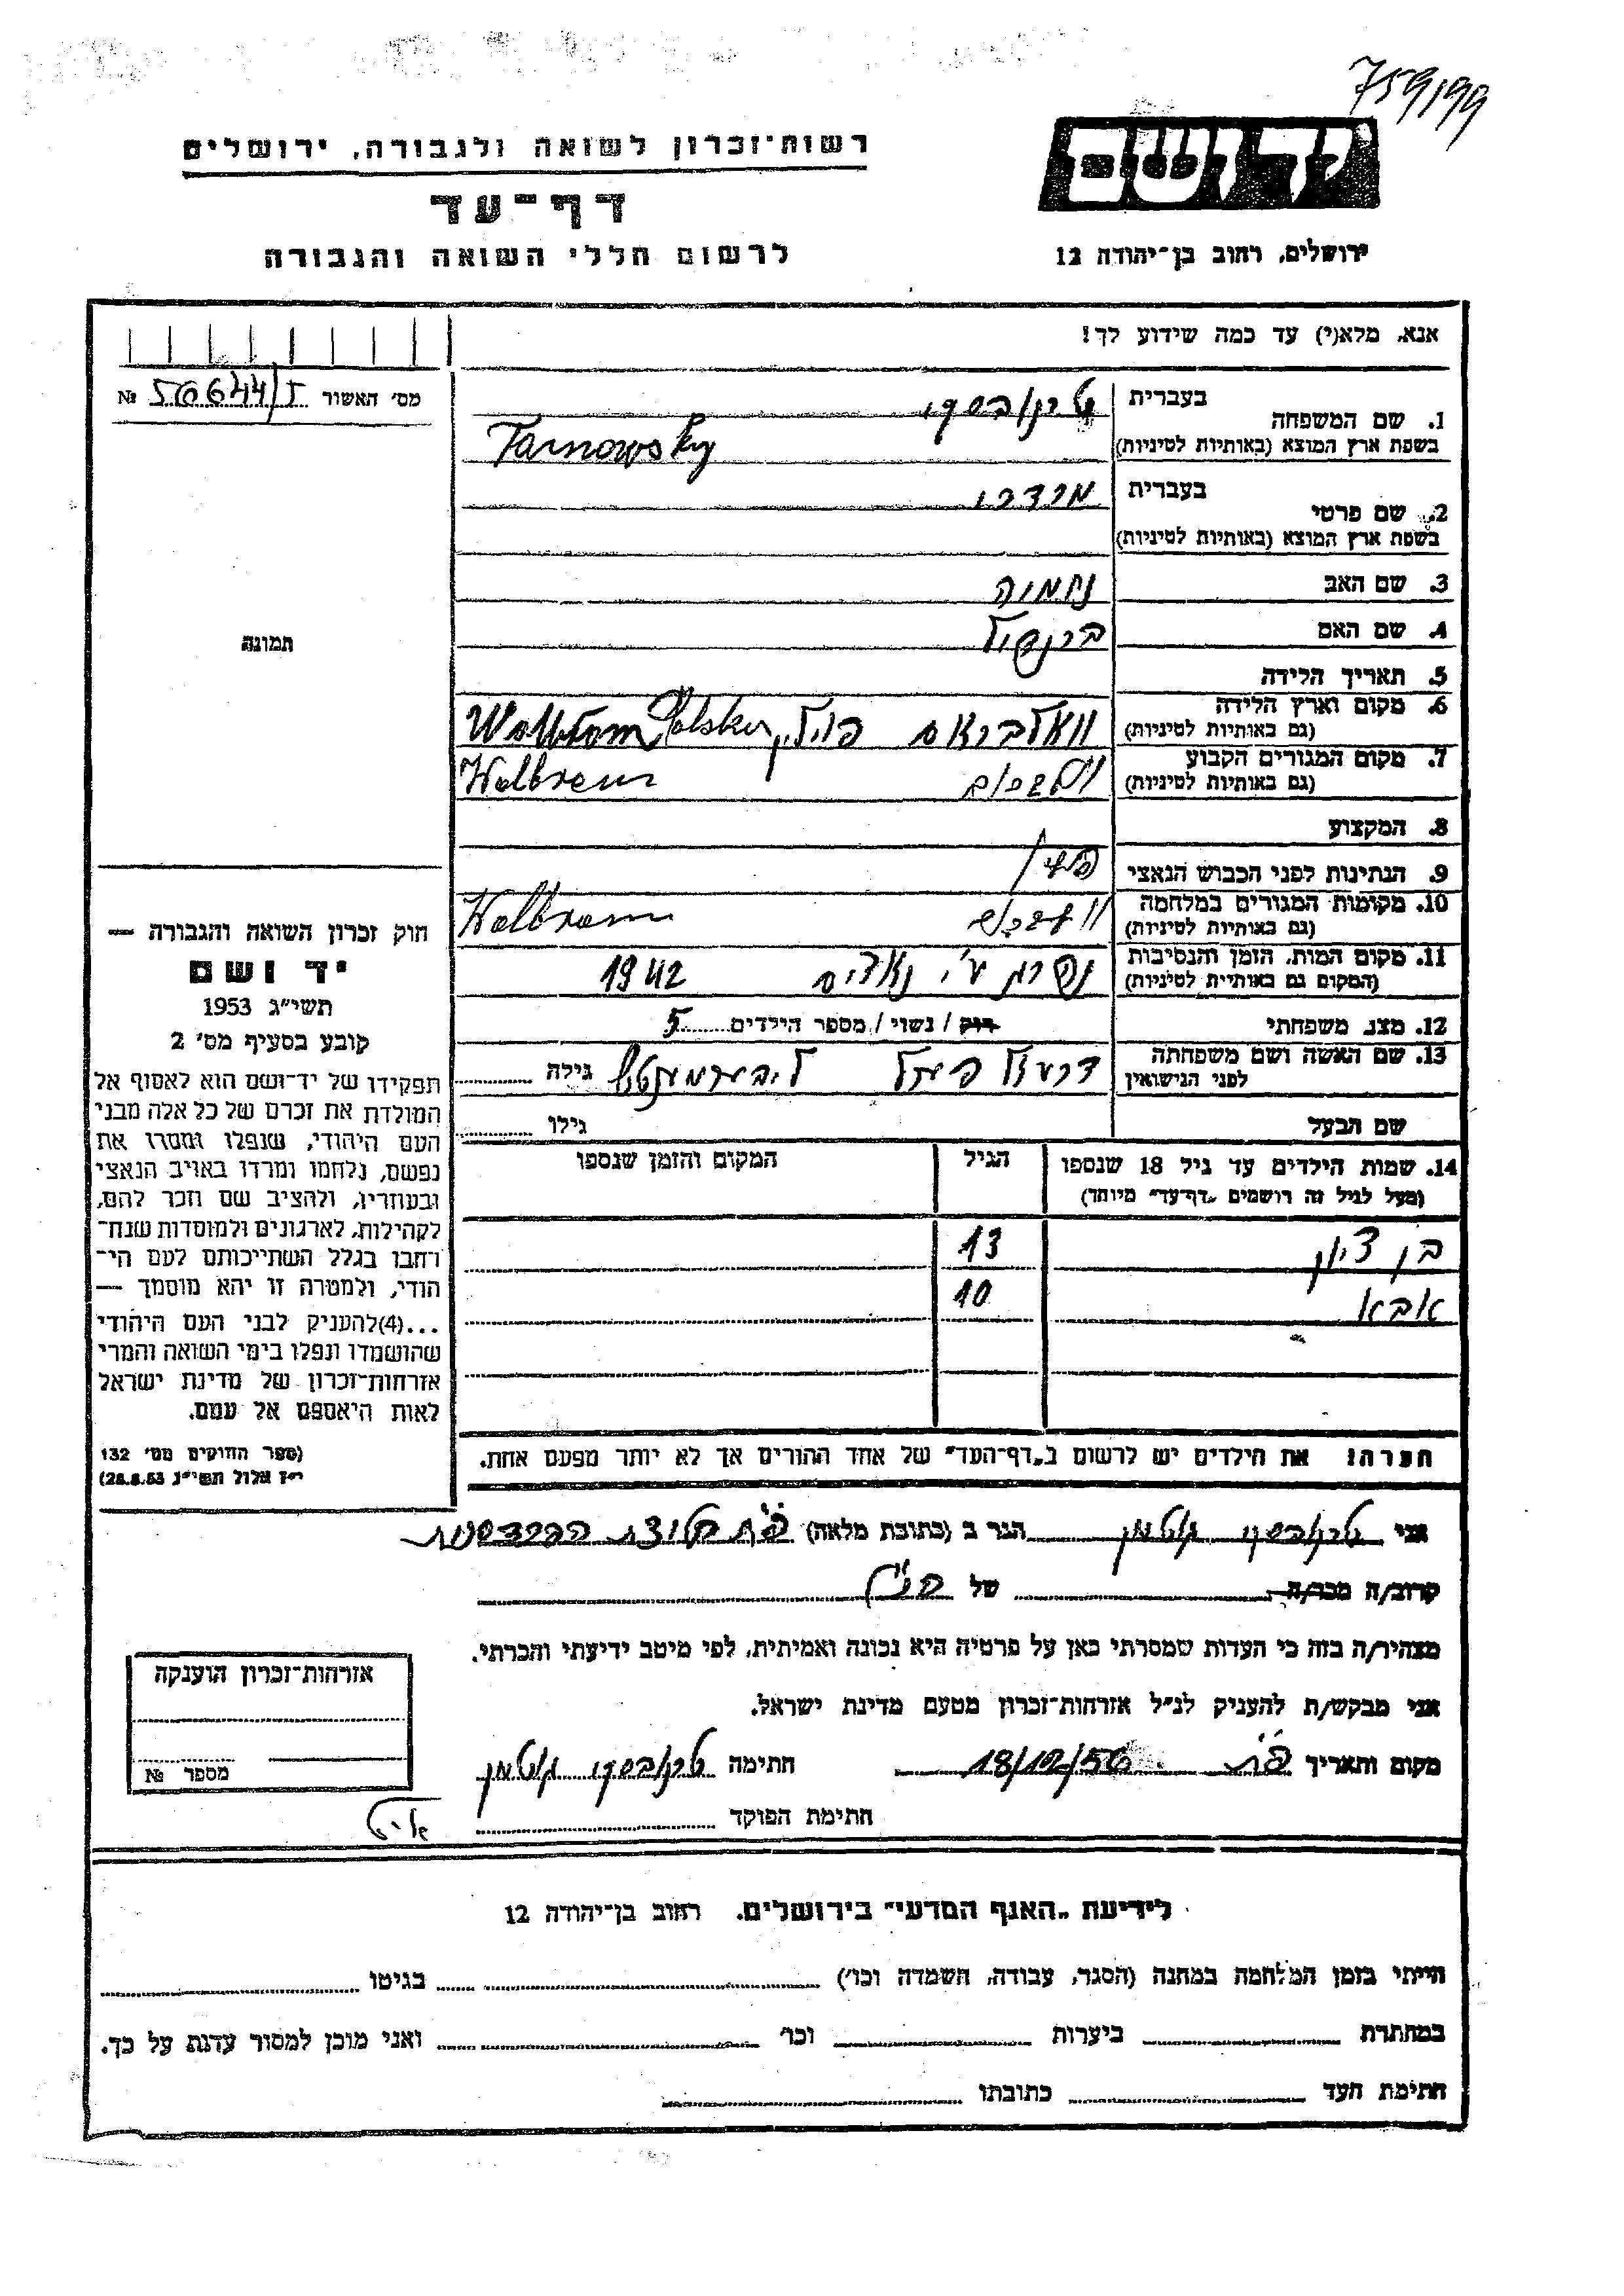 759/99
יד ושם
רשות-זכרון לשואה ולגבורה, ירושלים
דף-עד
לרשום חללי השואה והגבורה
ירושלים, רחוב בן-יהודה 12
אנא, מלא(י) עד כמה שידוע לך!
מס' האשור № 50644/I
1. שם המשפחה בעברית טרנובסקי
בשפת ארץ המוצא (באותיות לטיניות) Tarnowsky
2. שם פרטי בעברית מרדכי
בשפת ארץ המוצא (באותיות לטיניות)
3. שם האב נחמיה
4. שם האם ברנדיל
5. תאריך הלידה
6. מקום וארץ הלידה וואלבראם פולין Wolbrom Polska
(גם באותיות לטיניות)
7. מקום המגורים הקבוע Wolbrom
(גם באותיות לטיניות)
8. המקצוע
9. הנתינות לפני הכבוש הנאצי
10. מקומות המגורים במלחמה Wolbrom
(גם באותיות לטיניות)
11. מקום המות, הזמן והנסיבות נשרף ע"י נאצים 1942
(המקום גם באותיות לטיניות)
12. מצב משפחתי רוק / נשוי / מספר הילדים 5
13. שם האשה ושם משפחתה לפני הנישואין גילה
שם הבעל גילו
14. שמות הילדים עד גיל 18 שנספו הגיל המקום והזמן שנספו
(מעל לגיל זה רושמים "דף-עד" מיוחד)
בן ציון 13
אבא 10
הערה: את הילדים יש לרשום ב"דף-העד" של אחד ההורים אך לא יותר מפעם אחת.
תמונה
חוק זכרון השואה והגבורה —
יד ושם
תשי"ג 1953
קובע בסעיף מס' 2
תפקידו של יד-ושם הוא לאסוף אל
המולדת את זכרם של כל אלה מבני
העם היהודי, שנפלו ומסרו את
נפשם, נלחמו ומרדו באויב הנאצי
ובעוזריו, ולהציב שם וזכר להם,
לקהילות, לארגונים ולמוסדות שנח-
רבו בגלל השתייכותם לעם הי-
הודי, ולמטרה זו יהא מוסמך —
...(4) להעניק לבני העם היהודי
שהושמדו ונפלו בימי השואה והמרי
אזרחות-זכרון של מדינת ישראל
לאות היאספם אל עמם.
(ספר החוקים מס' 132
י"ז אלול תשי"ג 28.8.53)
אני טרנובסקי גוטמן הגר ב (כתובת מלאה) פ"ת קבוצת
קרוב/ה מכר/ה של הנ"ל
מצהיר/ה בזה כי העדות שמסרתי כאן על פרטיה היא נכונה ואמיתית, לפי מיטב ידיעתי והכרתי.
אני מבקש/ת להעניק לנ"ל אזרחות-זכרון מטעם מדינת ישראל.
מקום ותאריך פ"ת 18/12/56 חתימה טרנובסקי גוטמן
חתימת הפוקד
אזרחות-זכרון הוענקה
מספר №
לידיעת "האגף המדעי" בירושלים, רחוב בן-יהודה 12
הייתי בזמן המלחמה במחנה (הסגר, עבודה, השמדה וכו') בגיטו
במחתרת ביערות וכו' ואני מוכן למסור עדות על כך.
חתימת העד כתובתו